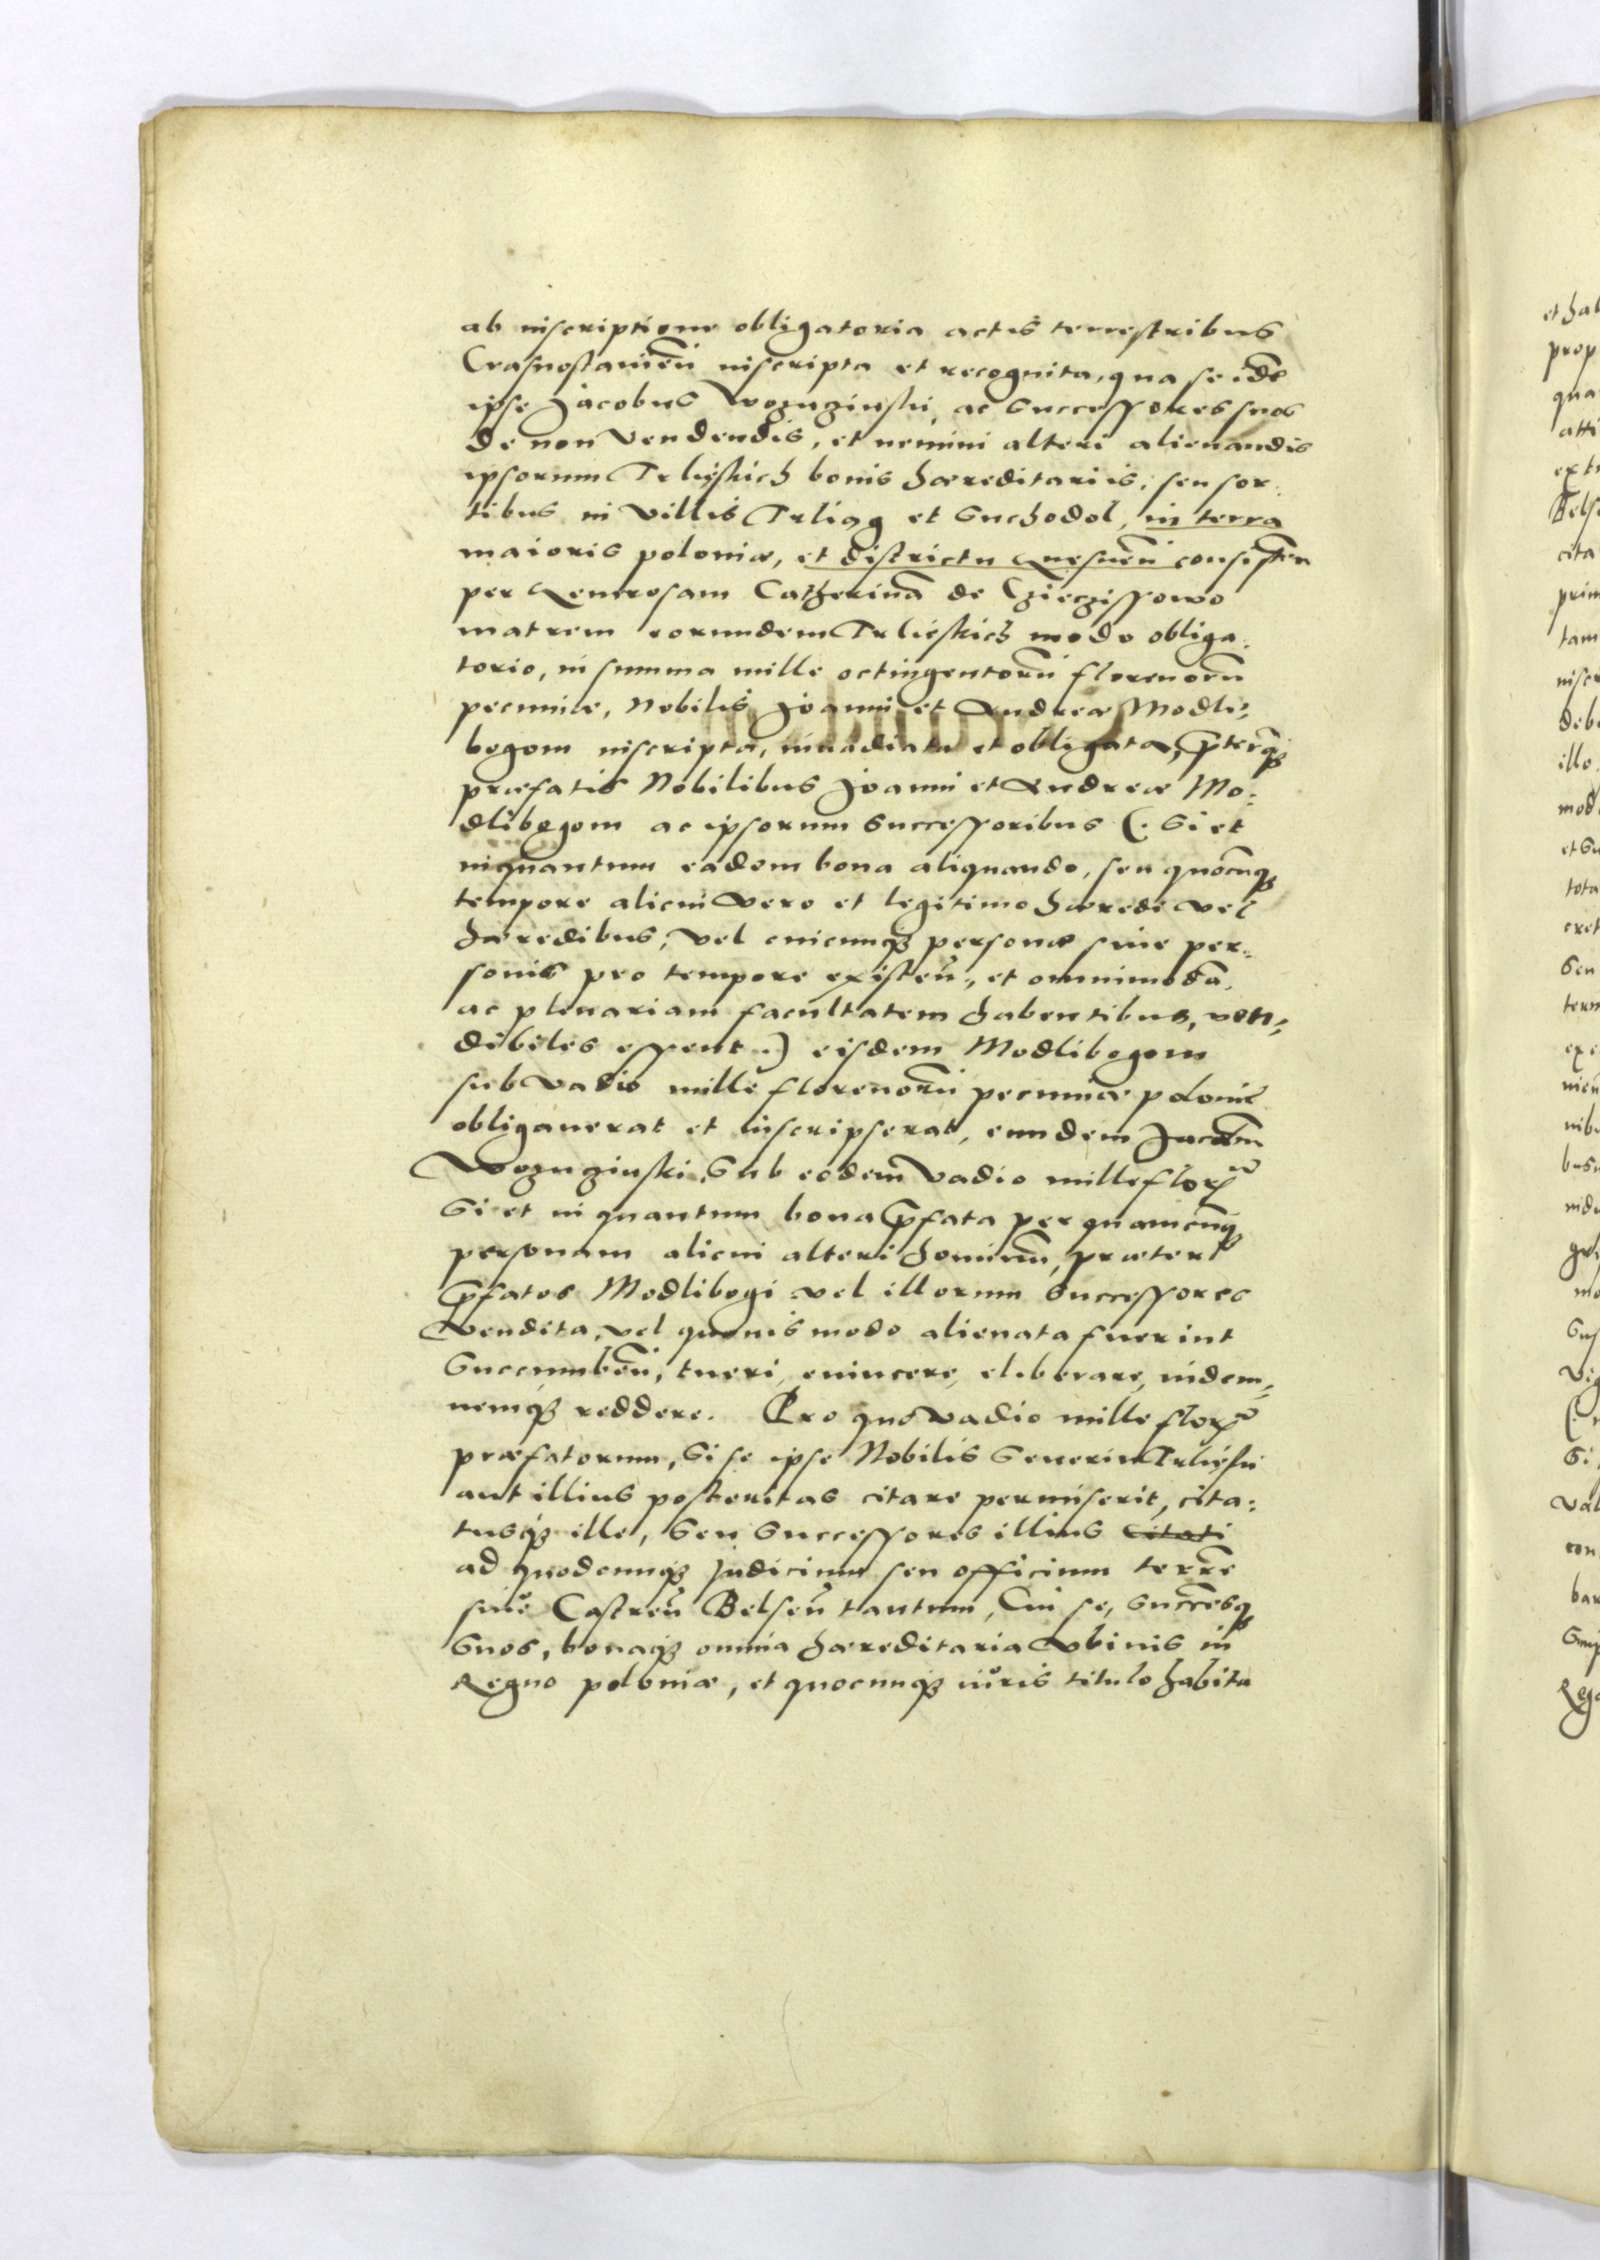 ab inscriptione obligatoria actis terrestribus
Crasnostavien̄ inscripta et recognita, qua se idē
ipse Jacobus Wozuczinski ac Successores suos
de non vendendis, et nemini alteri alienandis
ipsorum Trlięskich bonis haereditariis, seu sor-
tibus in villis Trliąg et Suchodol, in terra
maioris poloniae, et districtu Gnesnen̄ consisten̄
per Generosam Catherinā de Czieczissowo
matrem eorundem Trlięskich modo obliga-
torio, in summa mille octingentorū florenorū
pecuniae, Nobilis Joanni et Andreae Modli-
bogom inscripta, invadiata et obligata, p̄terq̄ꝫ
praefatis Nobilibus Joanni et Andreae Mo-
dlibogom ac ipsorum Successoribus (. Si et
inquantum eadem bona aliquando, seu quocunqꝫ
tempore alicui vero et legitimo haeredi vel
haeredibus, vel cuicunqꝫ personae sive per-
sonis pro tempore existen̄, et omnimodā,
ac plenariam facultatem habentibus, ven-
dibiles essent .) eisdem Modlibogom
sub vadio mille florenorū pecuniae polonic̄
obligaverat et inscripserat, eundem Jacobum
Wozuczinski, Sub eodem vadio mille flor̄
Si et in quantum bona p̄fata per quamcunqꝫ
personam alicui alteri hominū, praeter
p̄fatos Modlibogi vel illorum Successores
Vendita, vel quovis modo alienata fuerint
Succumben̄, tueri, evincere, eliberare, indem-
nemqꝫ reddere. Pro quo vadio mille flor̄
praefatorum, Si se ipse Nobilis Severin Trlięski
aut illius posteritas citare permiserit, cita-
tusqꝫ ille, Seu Successores illius citati
ad quodcunqꝫ Judicium seu officium terrē
sive Castren̄ Belsen̄ tantum, Cui se, Succ̄esqꝫ
Suos, bonaqꝫ omnia haereditaria Ubivis in
Regno poloniae, et quocunqꝫ iuris titulo habita